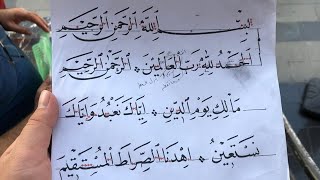 بِسْمِ اللَّهِ الرَّحْمَنِ الرَّحِيمِ
الْحَمْدُ لِلَّهِ رَبِّ الْعَالَمِينَ الرَّحْمَنِ الرَّحِيمِ
مَالِكِ يَوْمِ الدِّينِ إِيَّاكَ نَعْبُدُ وَإِيَّاكَ
نَسْتَعِينُ اهْدِنَا الصِّرَاطَ الْمُسْتَقِيمَ